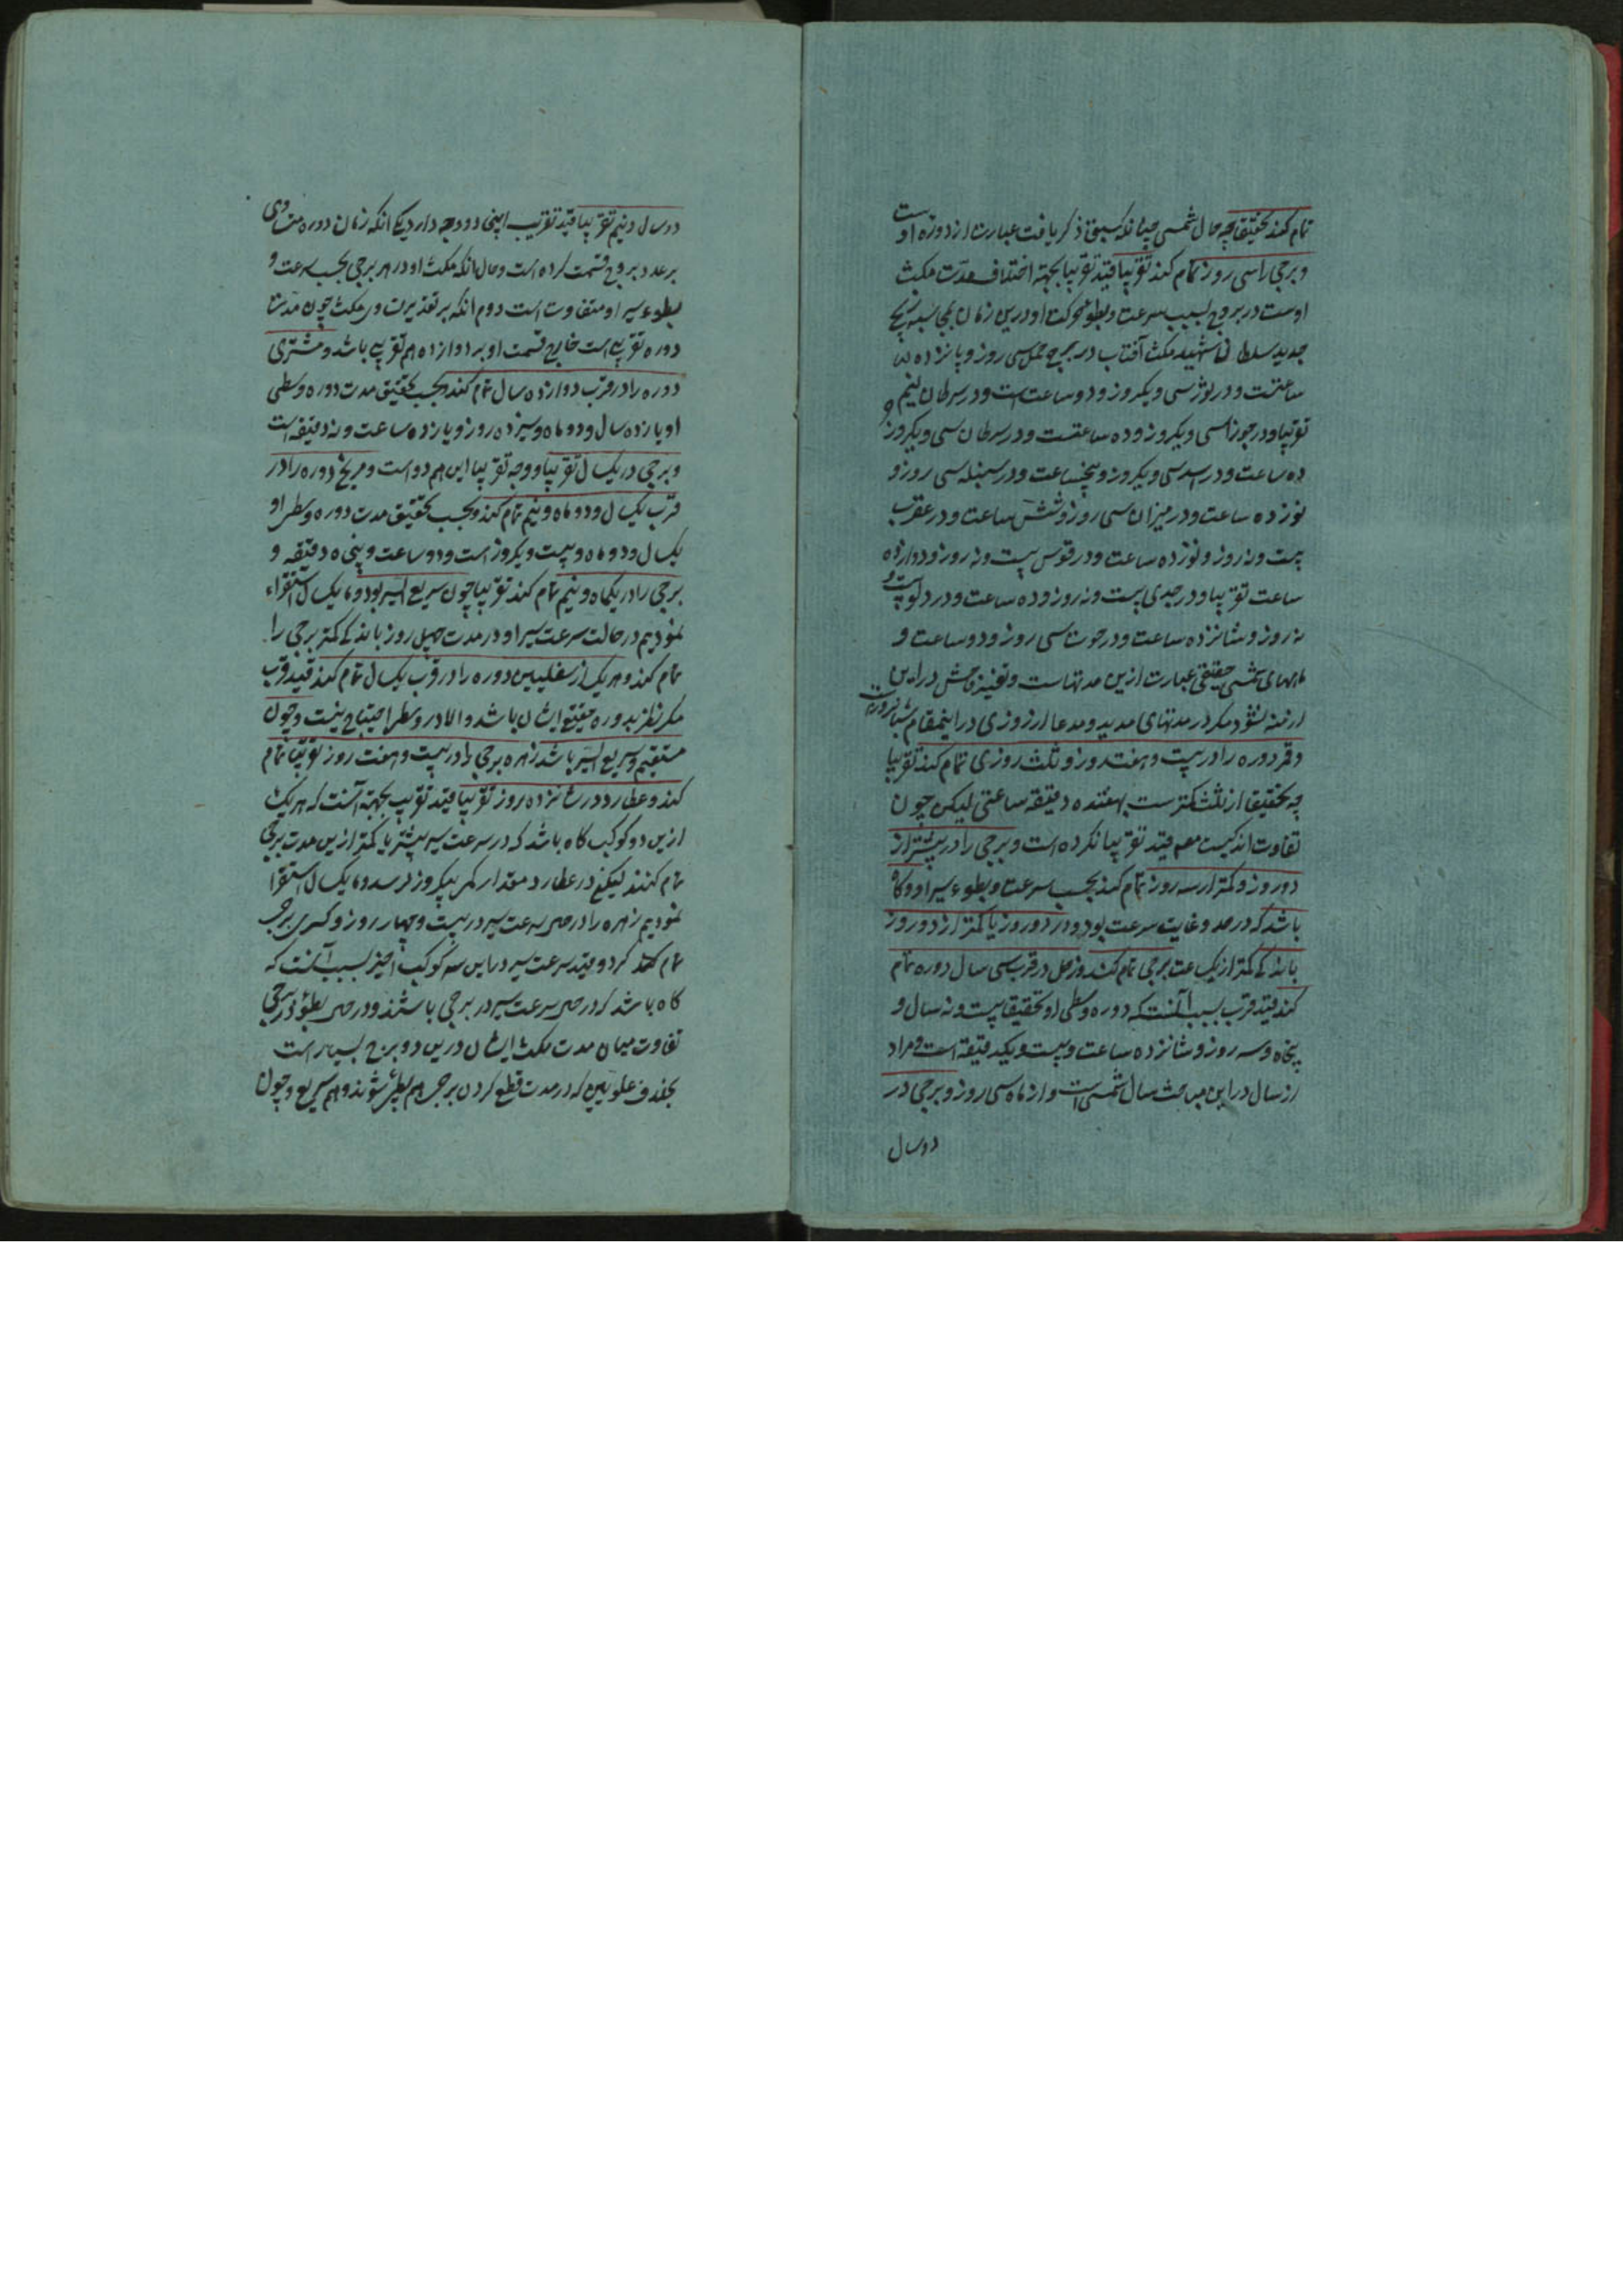 تمام کند تحقیقا چه سال شمسی چنانکه سبق ذکر یافت عبارت از دوره اوست
و برجی را سی روز تمام کند تقریبا قید تقریبا بجهة اختلاف مدت مکث
اوست در بروج بسبب سرعت و بطوء حرکت او درین زمان
جدید سلطان شهید مکث آفتاب در برج حمل سی روز و پانزده
ساعتست و در ثور سی و یکروز و دو ساعت است و
تقریبا و در جوزا سی و یکروز و ده ساعتست و در سرطان سی و یکروز و
ده ساعت و در اسد سی و یکروز و پنجساعت و در سنبله سی روز و
نوزده ساعت و در میزان سی روز و شش ساعت و در عقرب
بیست و نه روز و نوزده ساعت و در قوس بیست و نه روز و دوازده
ساعت تقریبا و در جدی بیست و نه روز و ده ساعت و در دلو بیست و
نه روز و شانزده ساعت و در حوت سی روز و دو ساعت و
ماههای شمسی حقیقی عبارت ازین مدتهاست و تغییر فاحش در این
ازمنه نشود مکر در مدتهای مدید و مدعا از روز در اینمقام شبانروزست
و قمر دوره را در بیست و هفت روز و ثلث روزی تمام کند تقریبا
چه تحقیقا از ثلث کمترست بهفده دقیقه ساعتی لیکن چون
تفاوت اندکیست مصه قید تقریبا نکرده است و برجی را در بیشتر از
دو روز و کمتر از سه روز تمام کند بحسب سرعت و بطوء سیر او و کاه
باشد که در حد و غایت سرعت بود و در دو روز یا کمتر از دو روز
باندکی کمتر از یکساعت برجی تمام کند و زحل در قرب سی سال دوره تمام
کند قید قرب بسبب آنست که دوره وسطی او تحقیقا بیست و نه سال و
پنجاه و سه روز و شانزده ساعت و بیست و یکدقیقه است و مراد
از سال در این مباحث سال شمسی است و از ماه سی روز و برجی در
دو سال
دو سال و نیم تقریبا قید تقریب اینجا دو وجه دارد یکی آنکه زمان دوره
بر عدد بروج قسمت کرده است و حال آنکه مکث او در هر برجی بحسب سرعت و
بطوء سیر او متفاوت است دوم آنکه بر تقدیر تساوی مکث چون مدت
دوره تقریبی است خارج قسمت او بر دوازده هم تقریبی باشد و مشتری
دوره را در قرب دوازده سال تمام کند و بحسب تحقیق مدت دوره وسطی
او یازده سال و دو ماه و سیزده روز و یازده ساعت و نه دقیقه است
و برجی در یکسال تقریبا و وجه تقریبا این هم دو است و مریخ دوره را در
قرب یکسال و دو ماه و نیم تمام کند و بحسب تحقیق مدت دوره وسطی او
یکسال و دو ماه و بیست و یکروز است و دو ساعت و پنجاه دقیقه و
برجی را در یکماه و نیم تمام کند تقریبا چون سریع السیر بود و ما یکسال استقراء
نمودیم در حالت سرعت سیر او در مدت چهل روز باندکی کمتر برجی را
تمام کند و هر یک از سفلیین دوره را در قرب یکسال تمام کند قید قرب
مکر نظر بدوره حقیقی ایشان باشد و الا در وسطی احتیاج نیست و چون
مستقیم و سریع السیر باشد زهره برجی را در بیست و هفت روز تقریبا تمام
کند و عطارد در شانزده روز تقریبا قید تقریب بجهة آنست که هر یک
ازین دو کوکب کاه باشد که در سرعت سیر بیشتر یا کمتر ازین مدت برجی
تمام کنند لیکن در عطارد مقدار کمی بیکروز نرسد و ما یکسال استقرا
نمودیم زهره را در حین سرعت سیر در بیست و چهار روز و کسری برجی
تمام کرد و قید سرعت سیر در این سه کوکب اخیر بسبب آنست که
کاه باشد که در حین سرعت سیر در برجی باشند و در حین بطوء در برجی
تفاوت میان مدت مکث ایشان درین دو برج بسیار است
بخلاف علویین که در مدت قطع کردن برجی هم بطئ شوند و هم سریع و چون